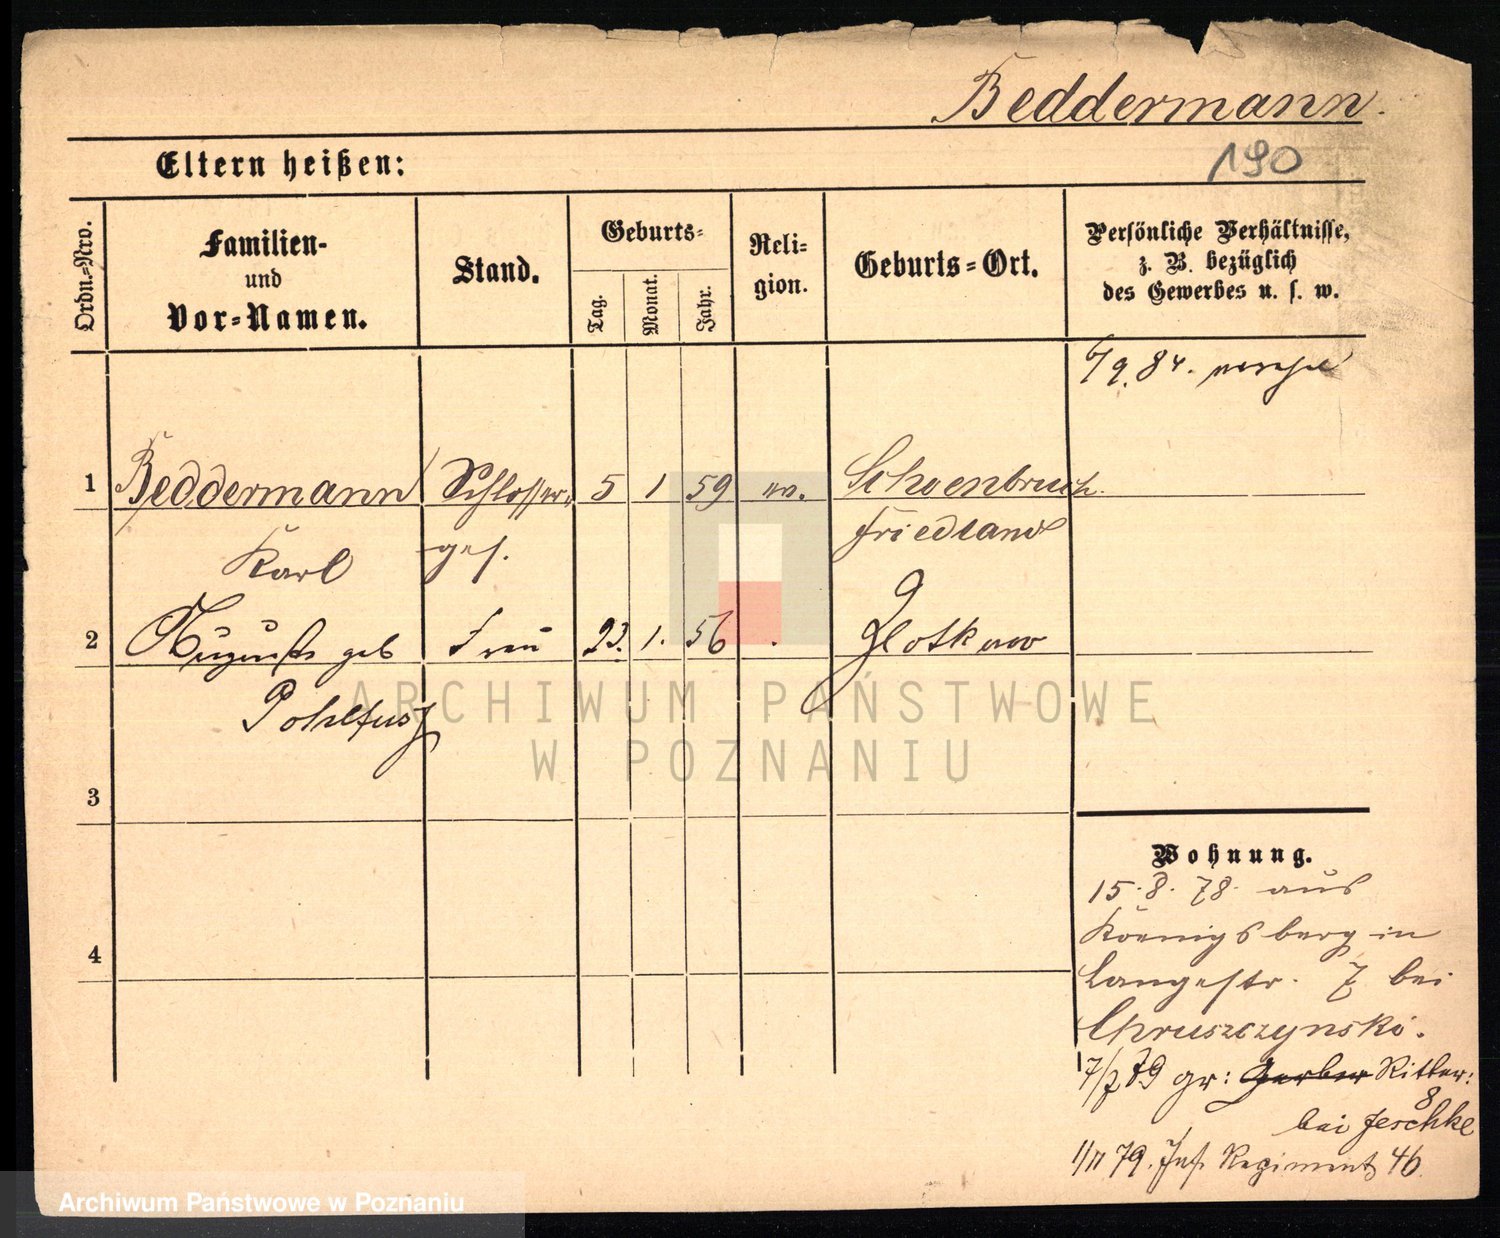 Beddermann.
190
Eltern heißen:
Ordn.-Nro.
Familien-
und
Vor-Namen.
Stand.
Geburts-
Tag.
Monat.
Jahr.
Reli-
gion.
Geburts-Ort.
Persönliche Verhältnisse,
z. B. bezüglich
des Gewerbes u. s. w.
6/9. 84.
1 Beddermann Schlosser- 5 1 59 ev. Schoenbruch
Karl ges. Friedland
2 August geb Frau 23. 1. 56 Zlotkowo
Pohlfusz
3
4
Wohnung.
15. 8. 78. aus
Koenigsberg in
Langestr. 7 bei
Chruszczynski.
7/7 79 gr: Gerber Ritter:
8
bei Jeschke
1/11 79. Inf. Regiment 46
ARCHIWUM PAŃSTWOWE
W POZNANIU
Archiwum Państwowe w Poznaniu